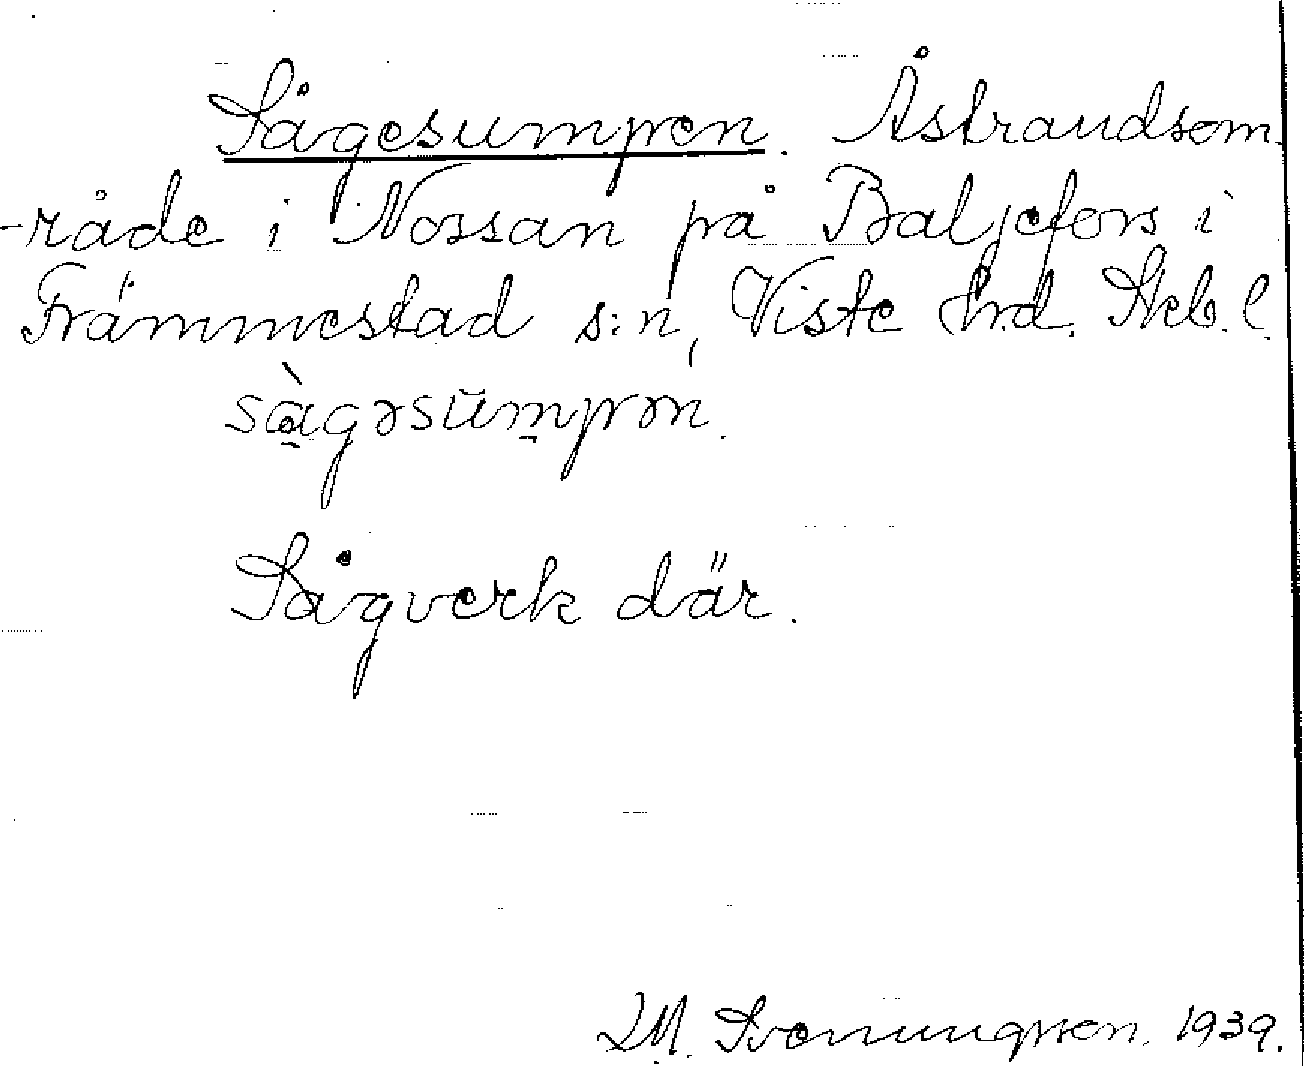 Sågesumpen. Åstrandsom-
-råde i Nossan på Baljefors i
Främmestad s:n, Viste hrd. Skb. l.
sàgəsum̥pən.
Sågverk där.
M. Svenungsson. 1939.